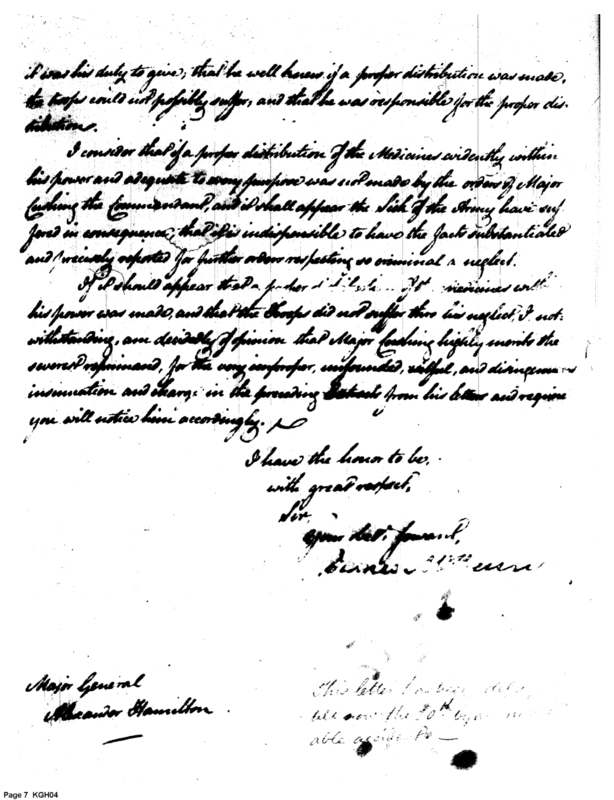 it was his duty to give; that he well knew if a proper distribution was made,
the troops could not possibly suffer; and that he was responsible for the proper dis-
tribution.
I consider that if a proper distribution of the Medicines evidently within
his power and adequate to every purpose was not made by the orders of Major
Cushing the Commandant, and it shall appear the Sick of the Army have suf
fered in consequence, that it is indispensible to have the facts substantiated
and precisely reported for further orders respecting so criminal a neglect.
If it should appear that a proper medicines within
his power was made, and that the Troops did not suffer thro his neglect, I not-
withstanding, am decidedly of opinion that Major Cushing highly merits the
severest reprimand, for the very improper, unfounded, and disingenuous
insinuation and charge in the preceding Extracts from his letters and require
you will notice him accordingly.
I have the honor to be,
with great respect,
Sir,
Your Obt. Servant,
Major General
Alexander Hamilton
This letter has been
till now the 30th by
able accidents
Page 7 KGH04